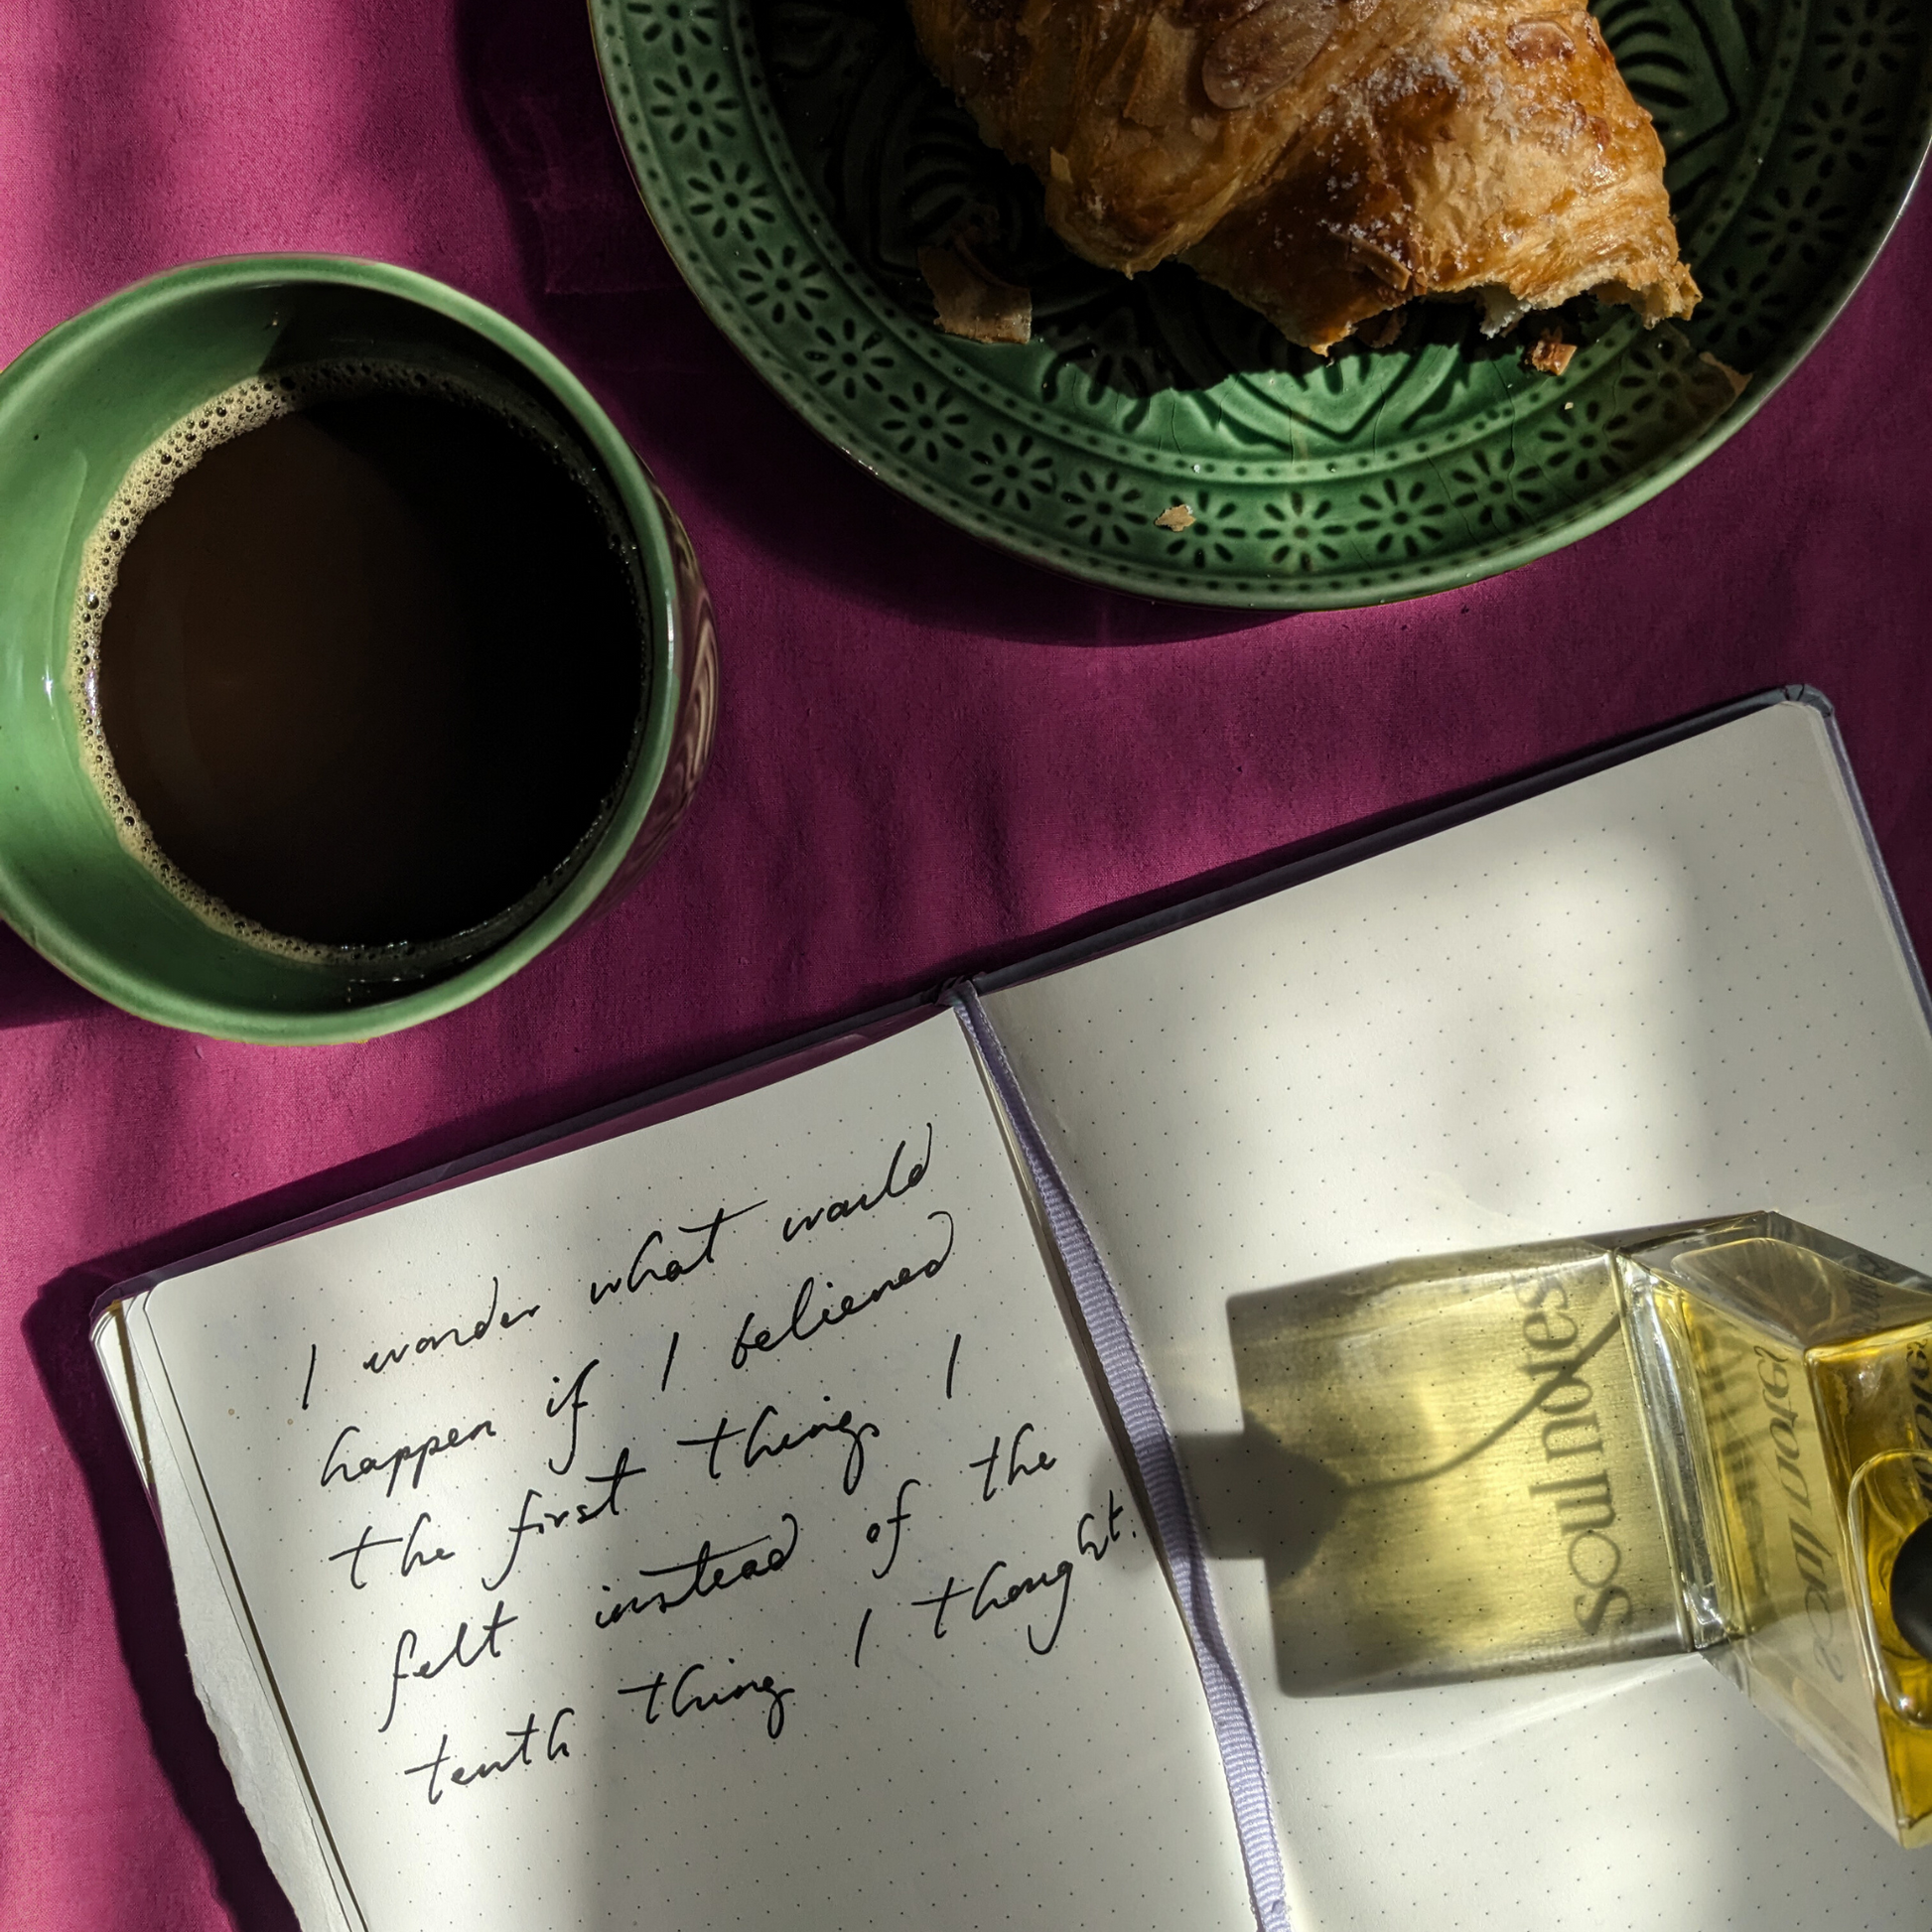 I wonder what would
happen if I believed
the first things I
felt instead of the
tenth thing I thought.
soul notes
soul notes